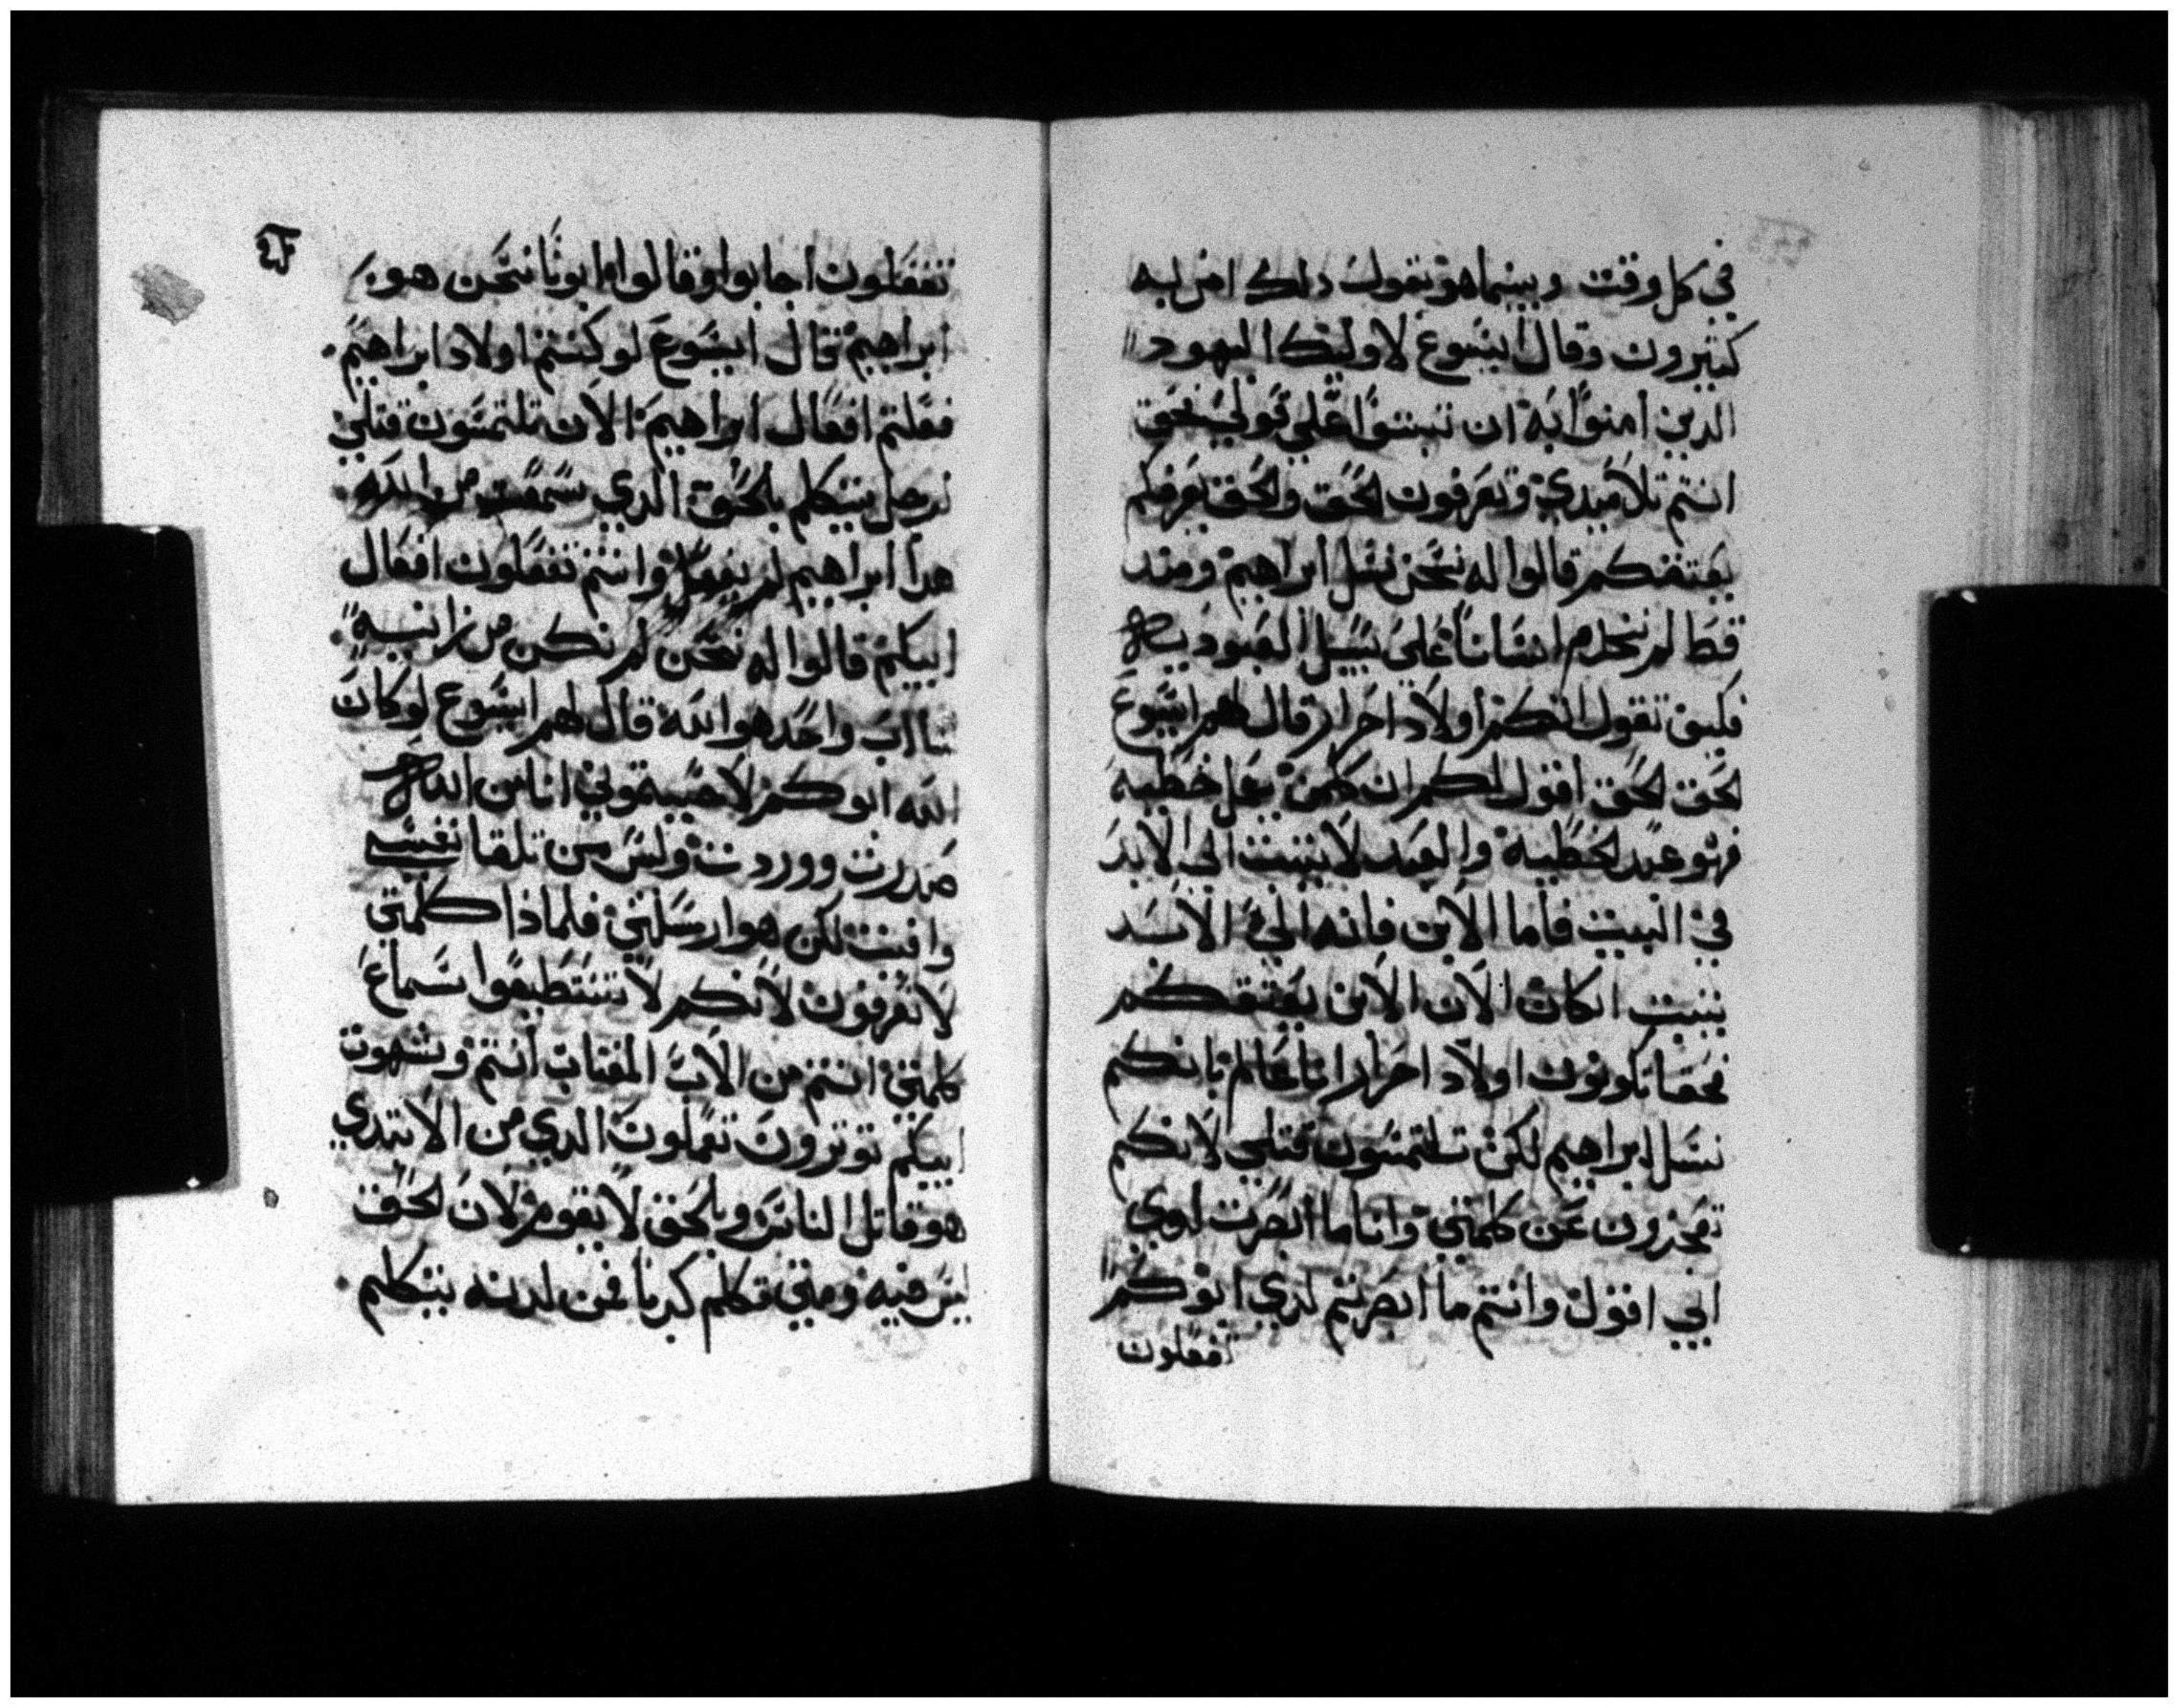 في كل وقت وبينما هو يقول دلك امن به
كثيرون وقال ايسوع لاوليك اليهود
الدين امنوا به ان تبتوا على قولي فحق
انتم تلاميدي وتعرفون الحق والحق يعرفكم
يعتقكم قالوا له نحن نسل ابراهيم ومند
قط لم نخدم انسانا على سبيل العبوديه
فكيف تقول انكم اولاد احرار قال لهم ايسوع
الحق الحق اقول لكم ان كلمن يعمل خطيه
فهو عبد الخطية والعبد لا يتبت الى الابد
في البيت فاما الابن فانه الى الابد
يتبت ان كان الان الابن يعتقكم
فحقا تكونون اولاد احرار انا عالم بانكم
نسل ابراهيم لكن تلتمسون قتلي لانكم
تعجزون عن كلمتي وانا ما ابصرت لدي
ابي اقول وانتم ما ابصرتم لدي ابوكم
تفعلون
٤٢
تفعلون اجابوا وقالوا له ابونا نحن هو
ابراهيم قال ايسوع لو كنتم اولاد ابراهيم
فعلتم افعال ابراهيم الان تلتمسون قتلي
رجل يتكلم بالحق الدي سمعت من الله
هدا ابراهيم لم يفعل وانتم تفعلون افعال
ابيكم قالوا له نحن لم نكن من زانيه
لنا اب واحد هو الله قال لهم ايسوع لو كان
الله ابوكم لاحببتموني انا من الله
صدرت ووردت وليس من تلقا نفسي
وافيت لكن هو ارسلني فلماذا كلمتي
لا تعرفون لانكم لا تستطيعوا سماع
كلمتي انتم من الاب المغتاب انتم وشهوت
ابيكم توترون تعملون الدي من الابتدي
هو قاتل الناس وبالحق لا يقوم لان الحق
ليس فيه ومتي تكلم كدبا فمن لدنه يتكلم